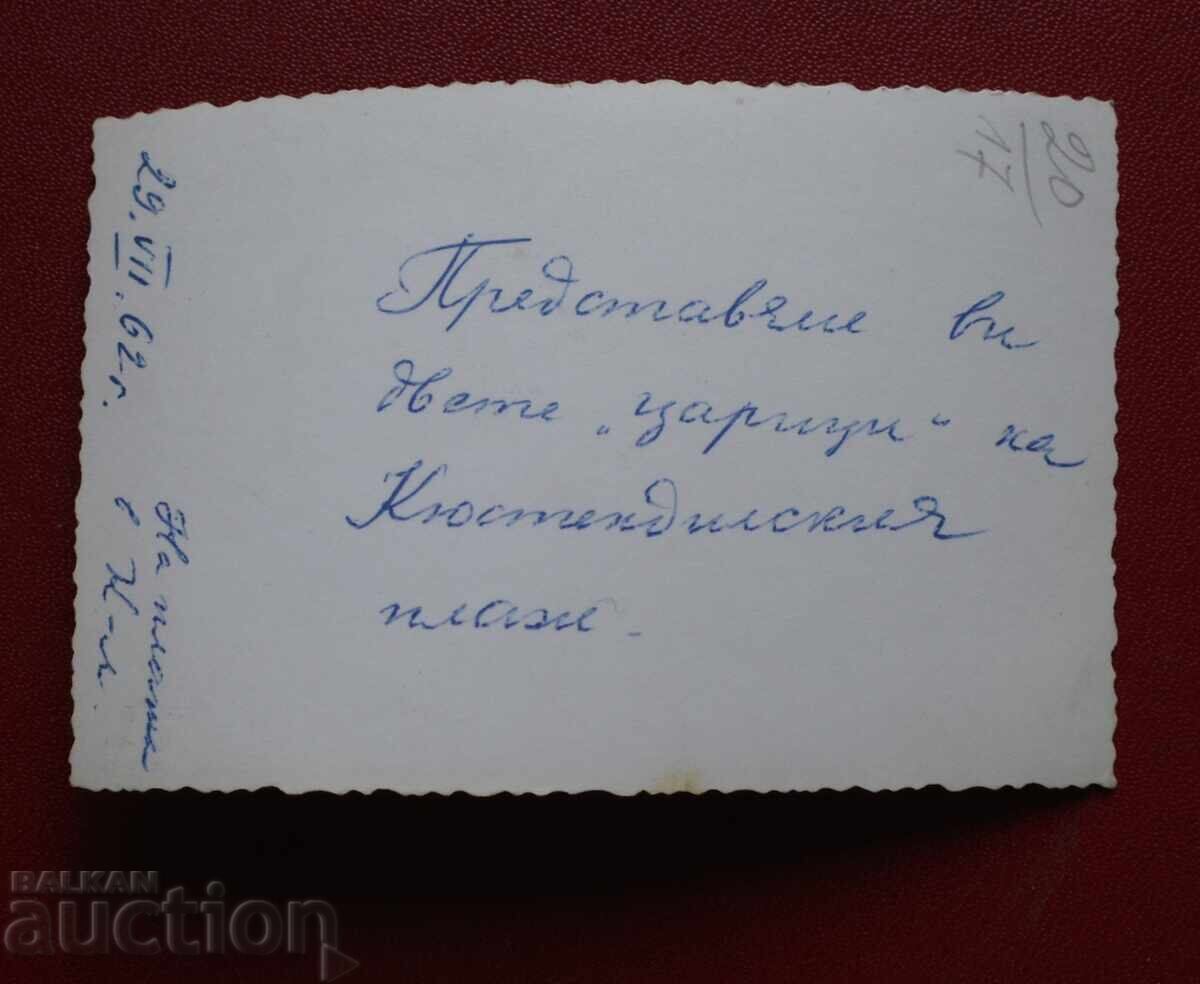 Представяме ви
двете „царици“ на
Кюстендилския
плаж.
29.VII.62 г.
На плажа
в К-л.
20
17
BALKAN
auction